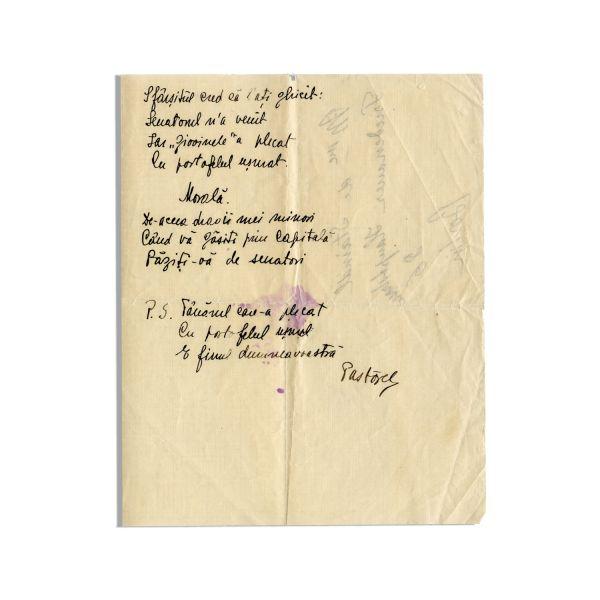 Sfârșitul cred că l'ați ghicit:
Senatorul n'a venit
Iar „Giovinele" a plecat
Cu portofelul ușurat.
Morală.
De-aceea dragii mei minori
Când vă găsiți prin Capitală
Păziți-vă de senatori
P.S. Tânărul care-a plecat
Cu portofelul ușurat
E finul dumneavoastră
Păstorel